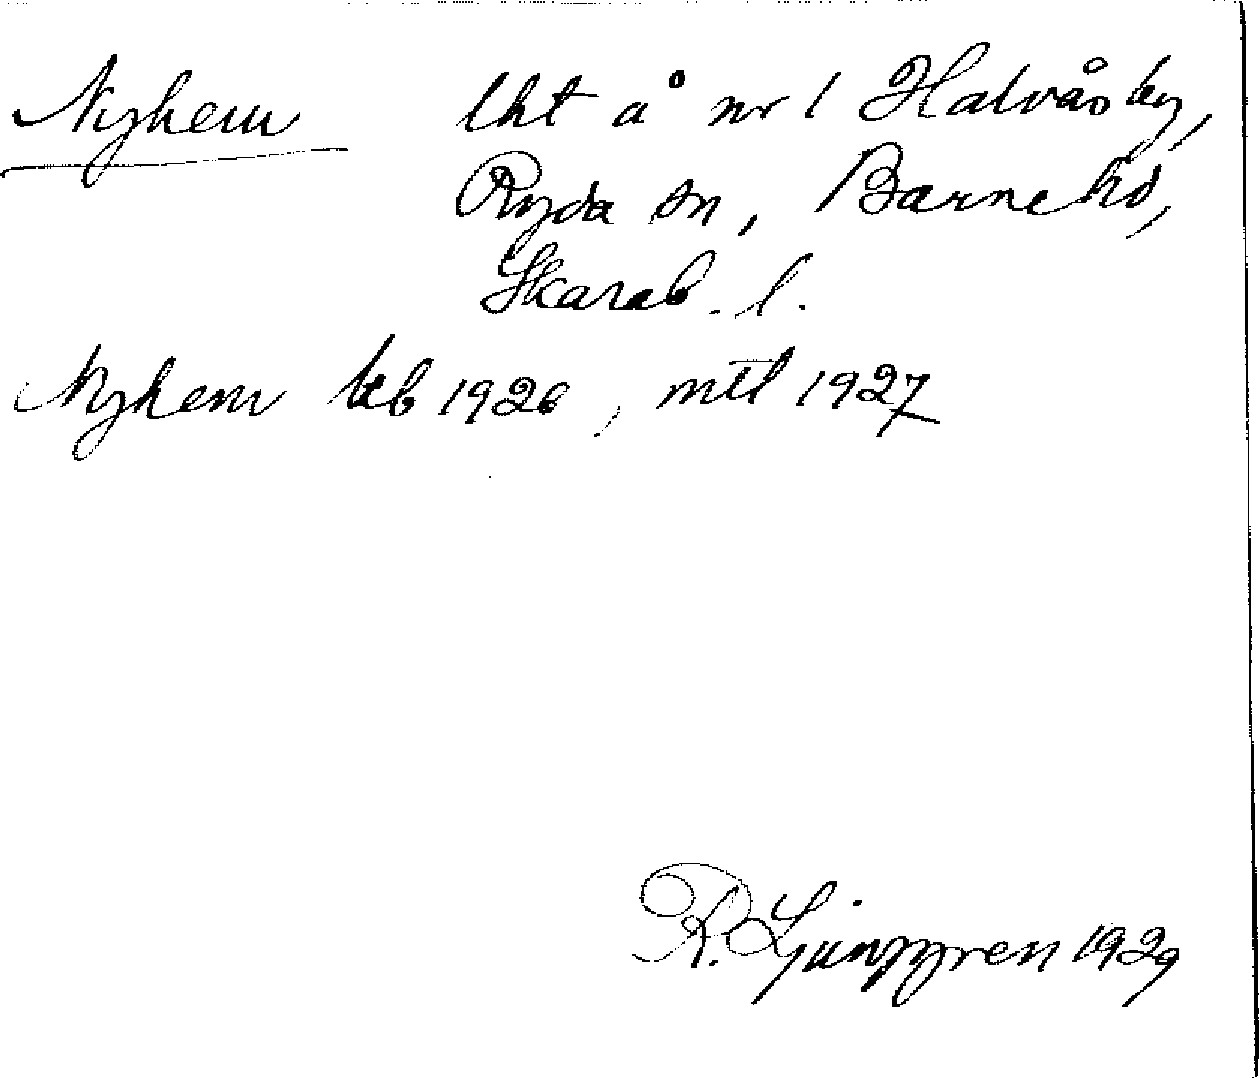 Nyhem lht å nr 1 Halvåsby,
Ryda sn, Barne hd,
Skarab. l.
Nyhem kb 1926, mtl 1927
R. Ljunggren 1929